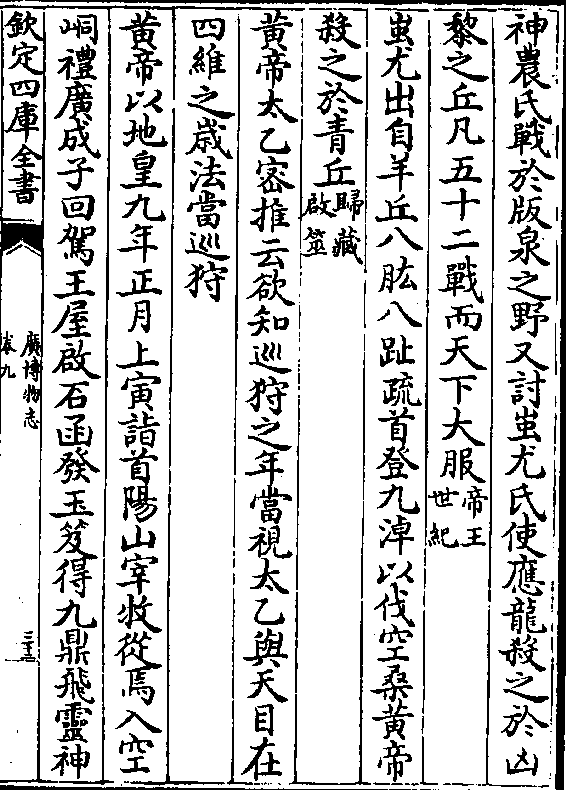 神農氏戰於版泉之野又討蚩尤氏使應龍殺之於凶
黎之丘凡五十二戰而天下大服帝王世紀
蚩尤出自羊丘八肱八趾疏首登九淖以伐空桑黃帝
殺之於青丘歸藏啟筮
黃帝太乙宻推云欲知巡狩之年當視太乙與天目在
四維之歳法當巡狩
黃帝以地皇九年正月上寅詣首陽山宰牧從焉入空
峒禮廣成子回駕王屋啟石函發玉笈得九鼎飛靈神
欽定四庫全書
廣博物志
卷九
三十三